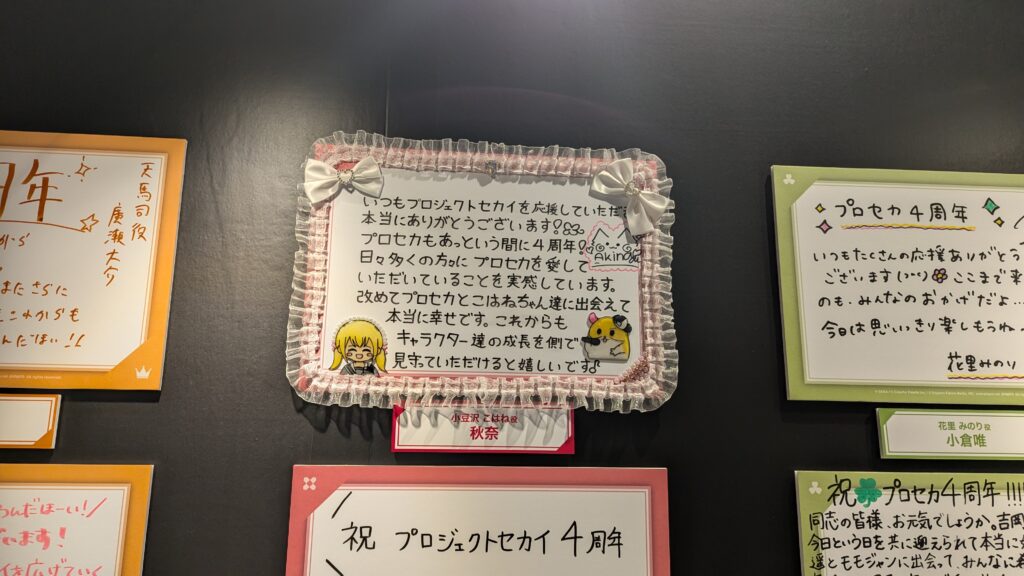 周年
天馬司役
廣瀬大介
から
またさらに
これからも
！！
いつもプロジェクトセカイを応援していただき
本当にありがとうございます！
プロセカもあっという間に4周年！
日々多くの方々に プロセカを愛して
いただいていることを実感しています。
改めてプロセカとこはねちゃん達に出会えて
本当に幸せです。これからも
キャラクター達の成長を側で
見守っていただけると嬉しいです
Akina
小豆沢 こはね役
秋奈
プロセカ4周年
いつもたくさんの応援ありがとう
ございます ここまで来
のも、みんなのおかげだよ…
今日は思いっきり楽しもうね
花里みのり
花里 みのり役
小倉唯
祝 プロジェクトセカイ 4周年
祝 プロセカ4周年!!!!
同志の皆様、お元気でしょうか。吉岡
今日という日を共に迎えられて本当に
達とモモジャンに出会って、みんなに
ざいます！
を広げていく